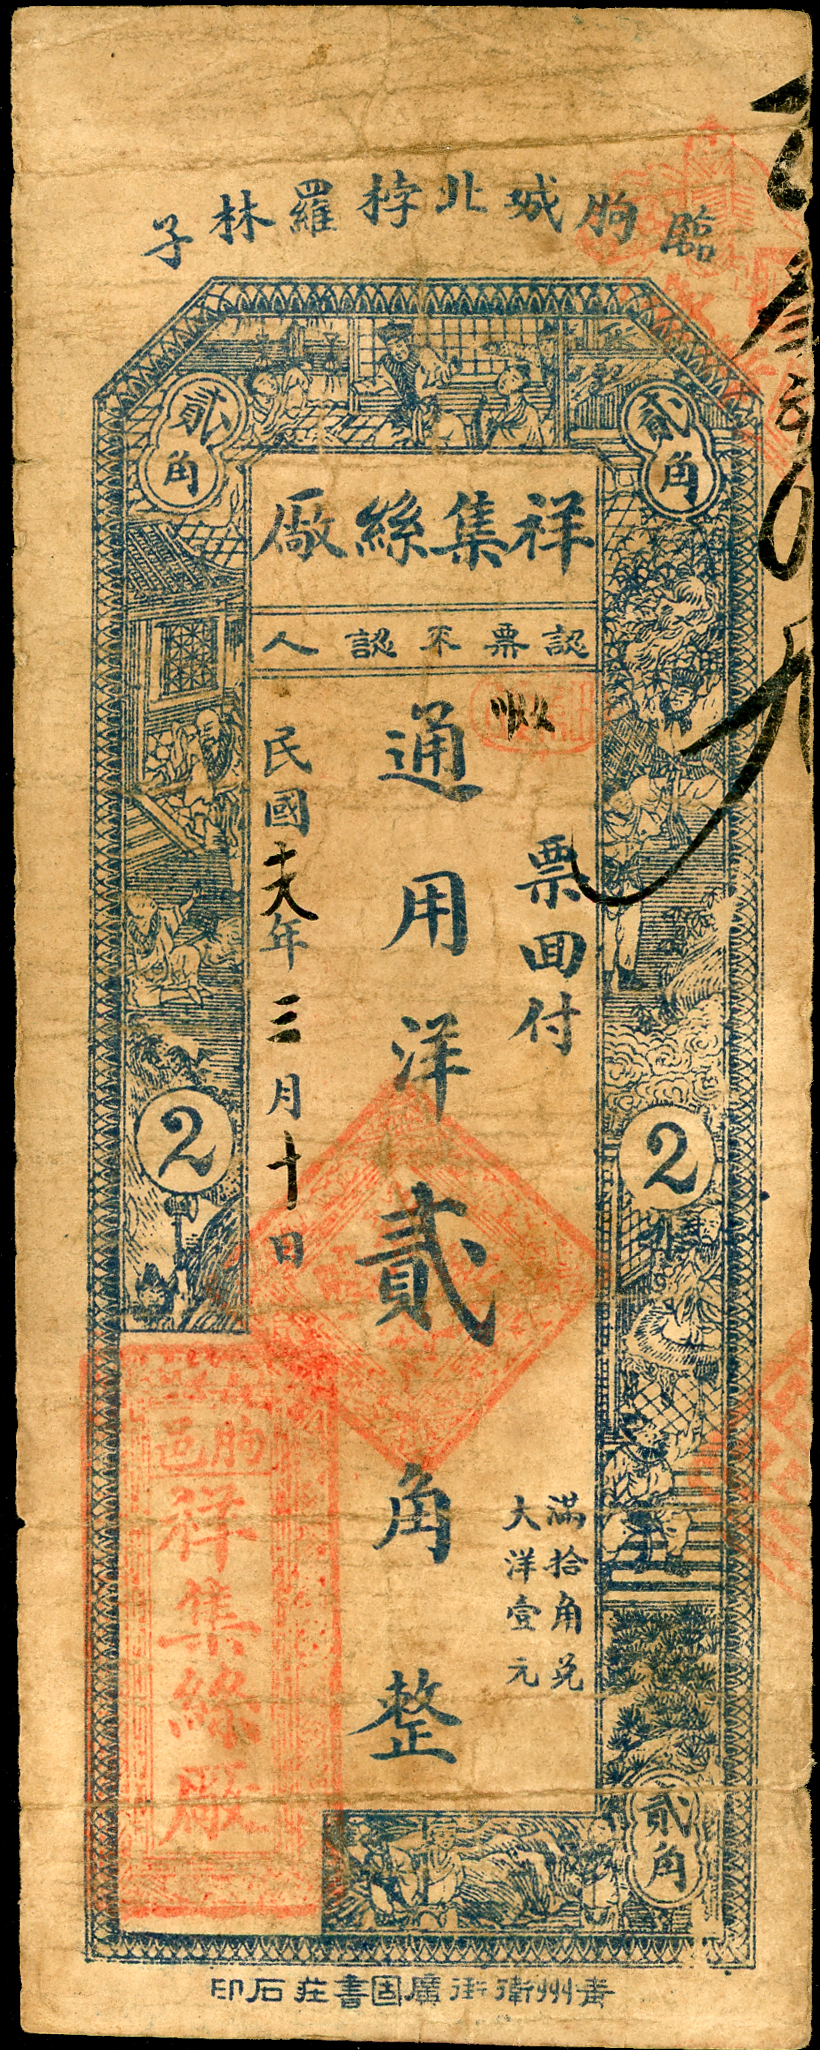 臨朐城北桲羅林子
貳角
貳角
祥集絲廠
認票不認人
票回付
通用洋貳角整
滿拾角兑
大洋壹元
民國十八年三月十日
2
2
貳角
朐邑
祥集絲廠
青州衛街廣固書莊石印